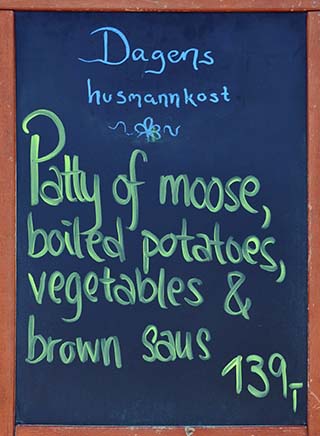 Dagens
husmannkost
Patty of moose,
boiled potatoes,
vegetables &
brown saus
139,-